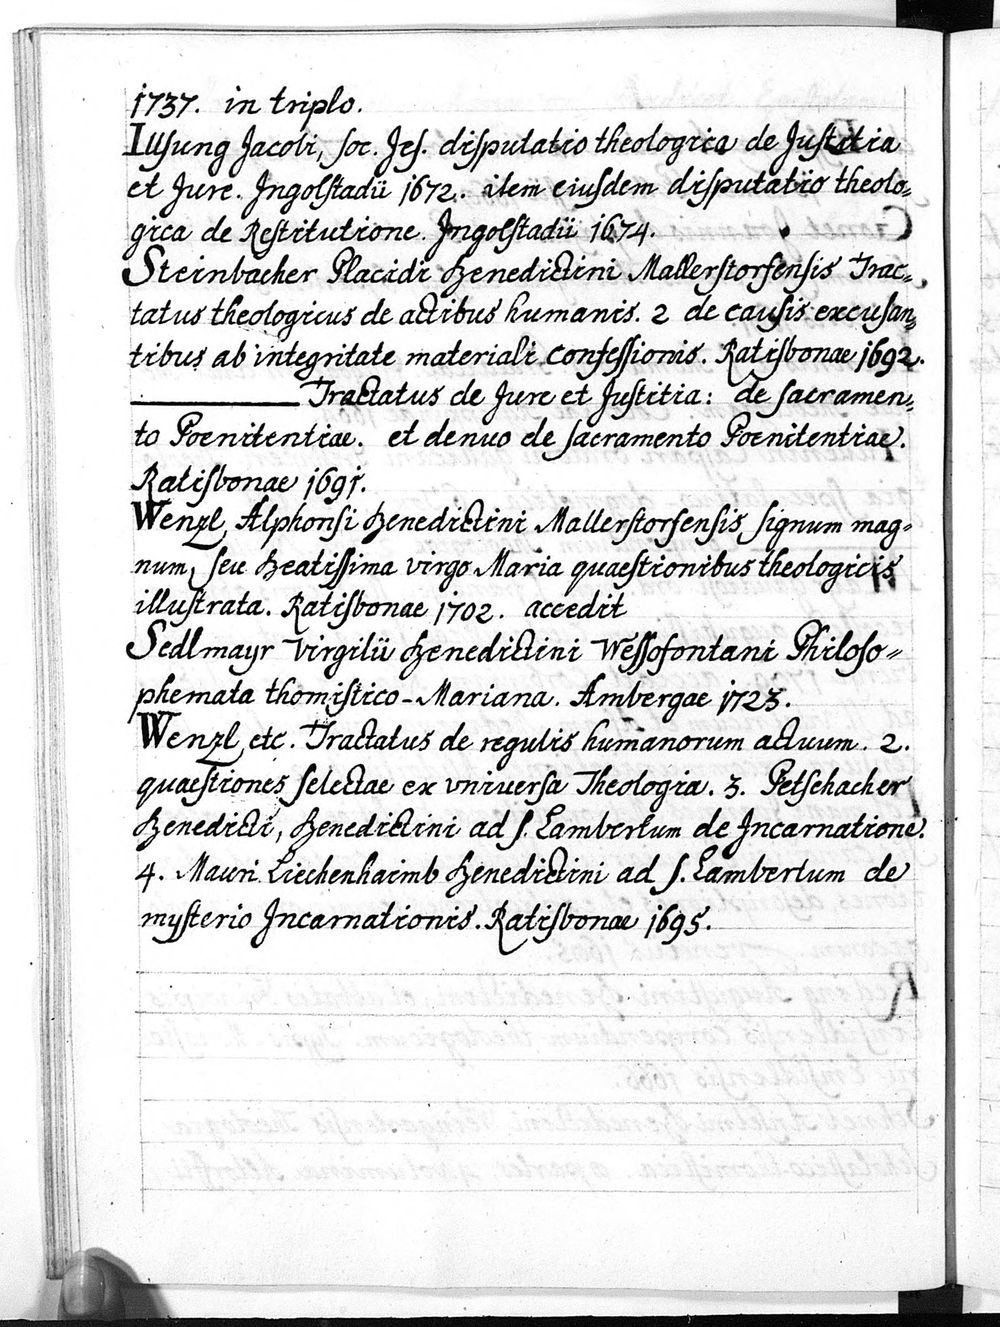 1737. in triplo.
Illsung Jacobi, Soc. Jes. disputatio theologica de Justitia
et Jure. Ingolstadii 1672. item eiusdem disputatio theolo=
gica de Restitutione. Ingolstadii 1674.
Steinbacher Placidi Benedictini Mallerstorfensis Trac=
tatus theologicus de actibus humanis. 2 de causis excusan=
tibus ab integritate materiali confessionis. Ratisbonae 1692.
———— Tractatus de Jure et Justitia: de sacramen=
to Poenitentiae. et denuo de sacramento Poenitentiae.
Ratisbonae 1691.
Wenzl Alphonsi Benedictini Mallerstorfensis signum mag=
num, seu Beatissima virgo Maria quaestionibus theologicis
illustrata. Ratisbonae 1702. accedit
Sedlmayr Virgilii Benedictini Wessofontani Philoso=
phemata thomistico-Mariana. Ambergae 1723.
Wenzl, etc. Tractatus de regulis humanorum actuum. 2.
quaestiones selectae ex vniversa Theologia. 3. Petschacher
Benedicti, Benedictini ad S. Lambertum de Incarnatione.
4. Mauri Liechenhaimb Benedictini ad S. Lambertum de
mysterio Incarnationis. Ratisbonae 1695.